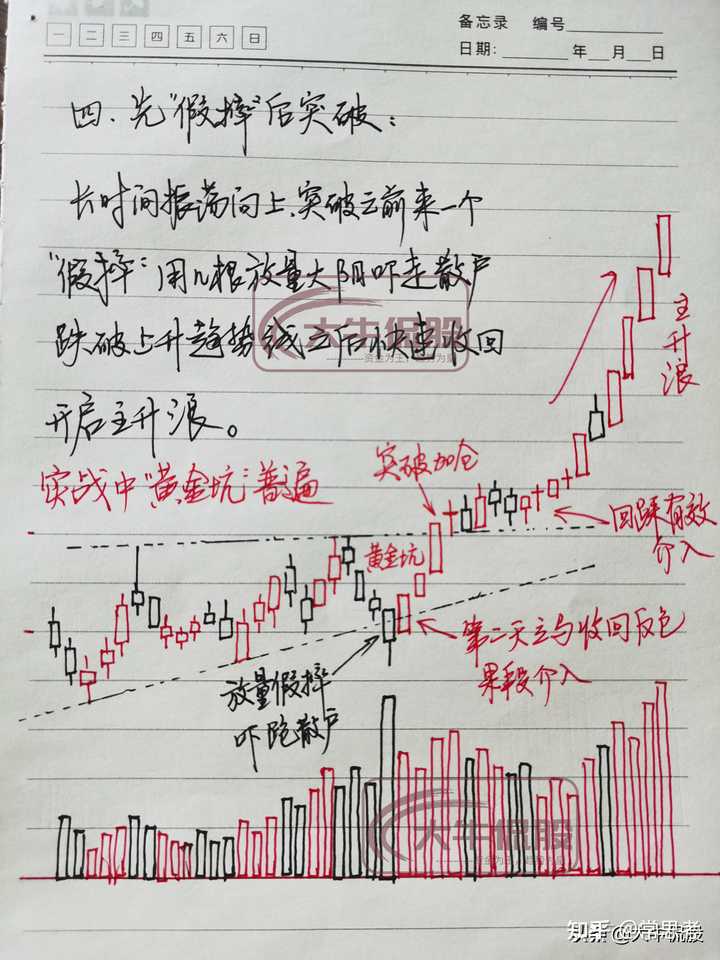 备忘录 编号
一 二 三 四 五 六 日
日期: 年 月 日
四、先“假摔”后突破：
长时间振荡向上、突破之前来一个
“假摔”用几根放量大阴吓走散户
跌破上升趋势线之后快速收回
开启主升浪。
实战中“黄金坑”普遍
主升浪
突破加仓
黄金坑
回踩有效
介入
第二天立马收回反包
果段介入
放量假摔
吓跑散户
大牛侃股
大牛侃股
知乎 @学思考
头条 @大牛侃股